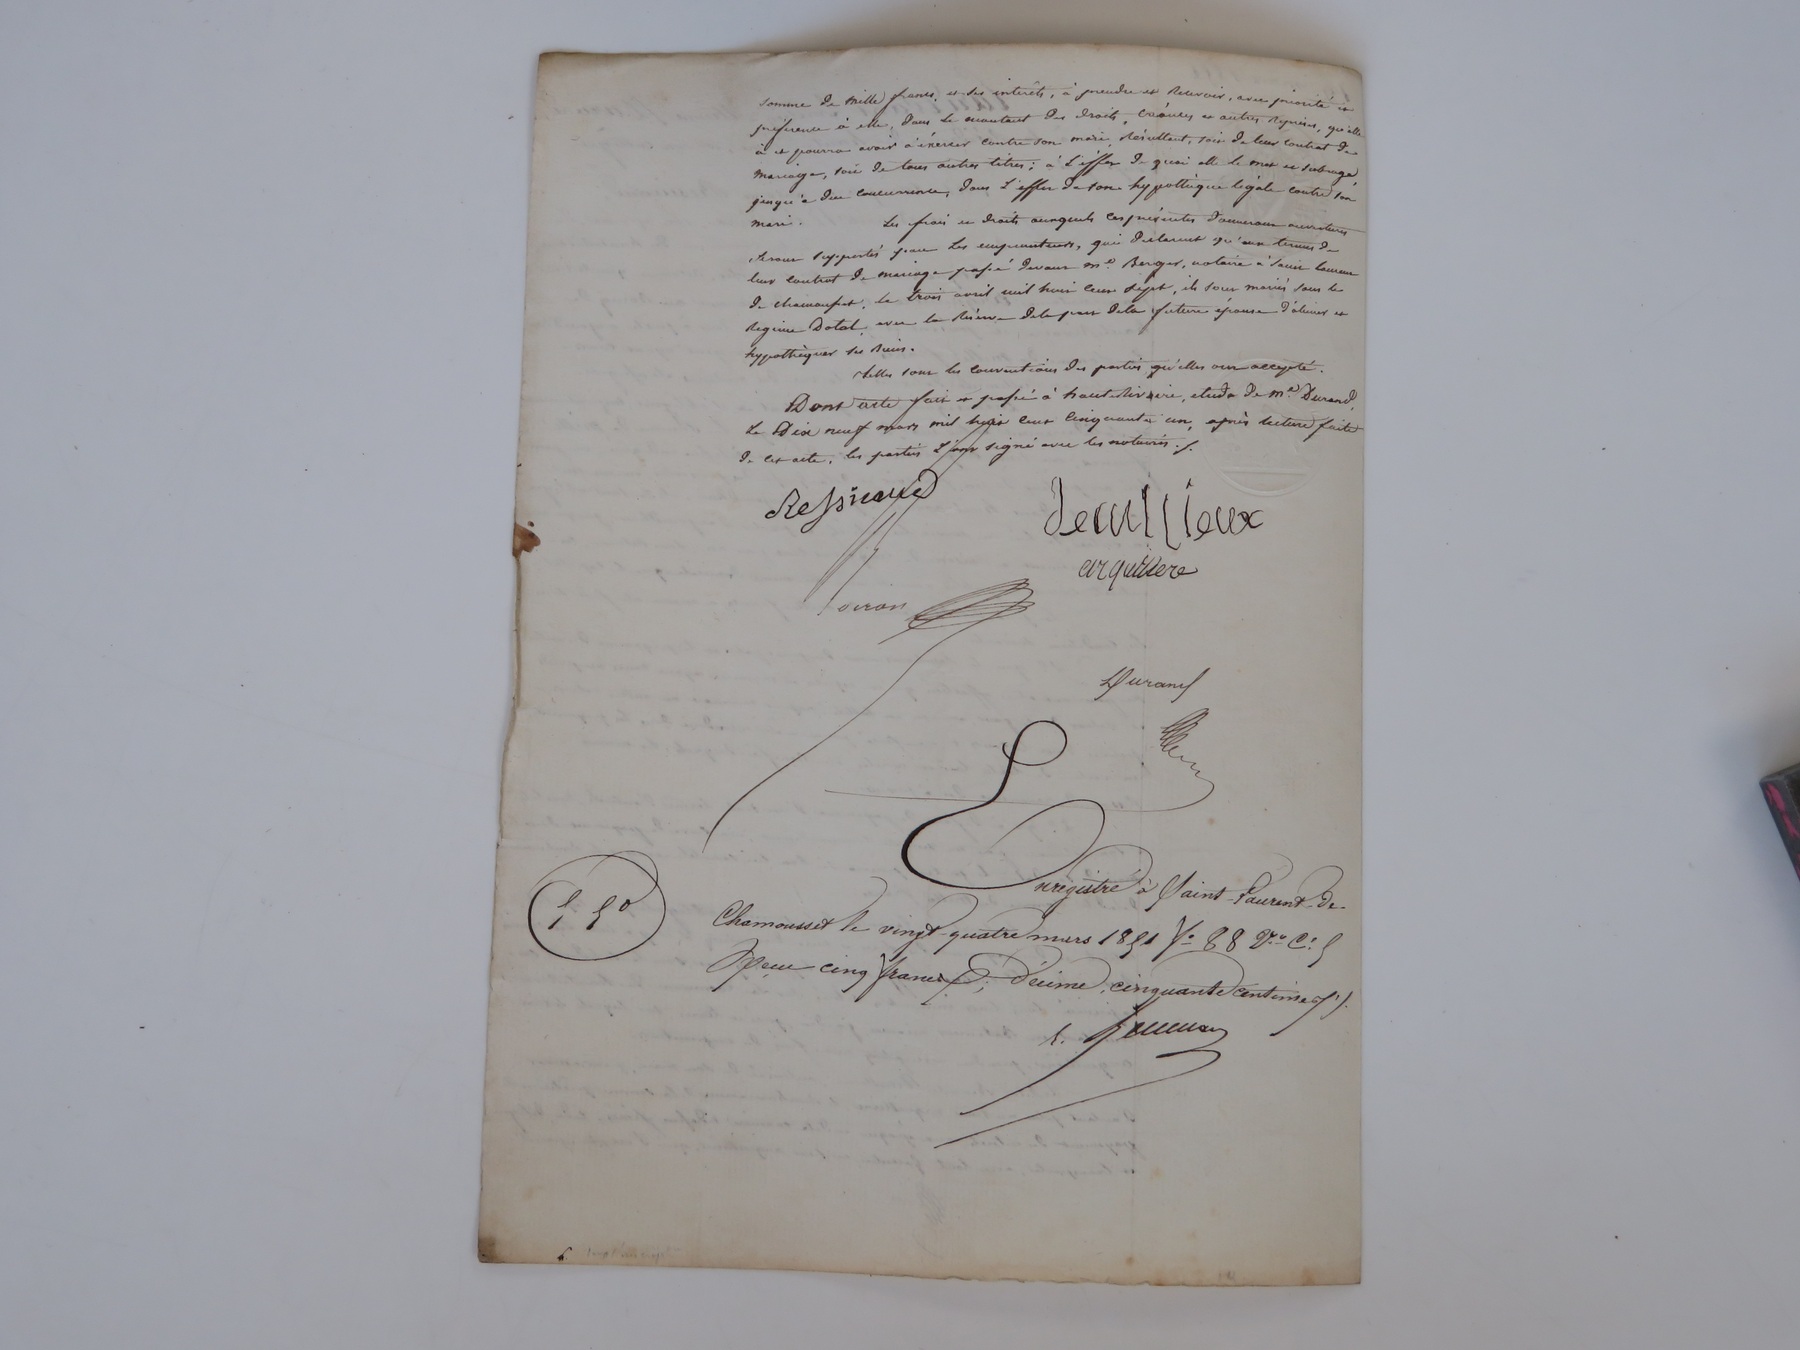 somme de mille francs, et ses intérêts, à prendre et recevoir, avec priorité et
préférence à elle, dans le montant des droits, créances et autres reprises, qu'elle
a et pourra avoir à exercer contre son mari, résultant, soit de leur contrat de
mariage, soit de tous autres titres; à l'effet de quoi elle le met et subroge,
jusqu'à due concurrence, dans l'effet de son hypothèque légale contre son
mari. Les frais et droits auxquels ces présentes donneront ouverture
seront supportés par les emprunteurs, qui déclarent qu'aux termes de
leur contrat de mariage passé devant me Berger, notaire à Saint Laurent
de chamousset, le trois avril mil huit cent sept, ils sont mariés sous le
Régime Dotal, avec la Réserve de la part de la future épouse d'aliéner et
hypothéquer ses Biens.
Telles sont les conventions des parties qu'elles ont accepté.
Dont acte fait et passé à hauterivoire, étude de me Durand,
Le Dix neuf mars mil huit cent cinquante un, après lecture faite
de cet acte, les parties l'ont signé avec les notaires.
Ressicaud
deculLieux
arquillere
Durand
Enregistré à Saint-Laurent-de-
Chamousset le vingt-quatre mars 1851 fo 88 Vo Ce 5
Reçu cinq francs, décime cinquante centimes
5 50